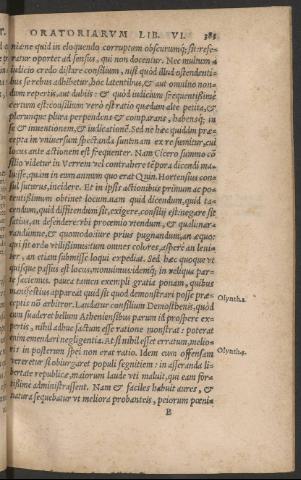 ORATORIARVM LIB. VI. 385
niéne quid in eloquendo corruptum obscurumq; sit: rese-
ratur oportet ad sensus, qui non docentur. Nec multum à
iudicio credo distare consilium, nisi quòd illud ostendenti-
bus se rebus adhibetur, hoc latentibus, & aut omnino non-
dum repertis, aut dubiis: & quòd iudicium frequentissimè
certum est: consilium verò est ratio quædam altè petita, &
plerunque plura perpendens & comparans, habensq; in
se & inuentionem, & iudicationē. Sed ne hæc quidam præ-
cepta in vniuersum spectanda sunt: nam ex re sumitur, cui
locus ante actionem est frequenter. Nam Cicero summo cō-
silio videtur in Verrem vel contrahere tēpora dicendi ma-
luisse, quàm in eum annum quo erat Quin. Hortensius con-
sul futurus, incidere. Et in ipsis actionibus primum ac po-
tentissimum obtinet locum. nam quid dicendum, quid ta-
cendum, quid differendum sit, exigere, consilij est: negare sit
satius, an defendere: vbi procemio vtendum, & quali: nar-
randumne, & quomodo: iure prius pugnandum, an æquo:
qui sit ordo vtilissimus: tum omnes colores, asperè an leni-
ter, an etiam submisse loqui expediat. Sed hæc quoque vt
quisque passus est locus, monuimus: idemq; in reliqua par-
te faciemus. pauca tamen exempli gratia ponam, quibus
manifestius appareat quid sit quod demonstrari posse præ-
ceptis nō arbitror. Laudatur consilium Demosthenis, quòd
cum suaderet bellum Atheniensibus parum id prospere ex-
pertis, nihil adhuc factum esse ratione monstrat: poterat
enim emendari negligentia. At si nihil esset erratum, melio-
ris in posterum spei non erat ratio. Idem cum offensam
vereretur si obiurgaret populi segnitiem: in asserenda li-
bertate reipublicæ, maiorum laude vti maluit, qui eam for-
tissimè administrassent. Nam & faciles habuit aures, &
natura sequebatur vt meliora probanteis, peiorum pœni-
B
Olyntha.
Olynthæ.